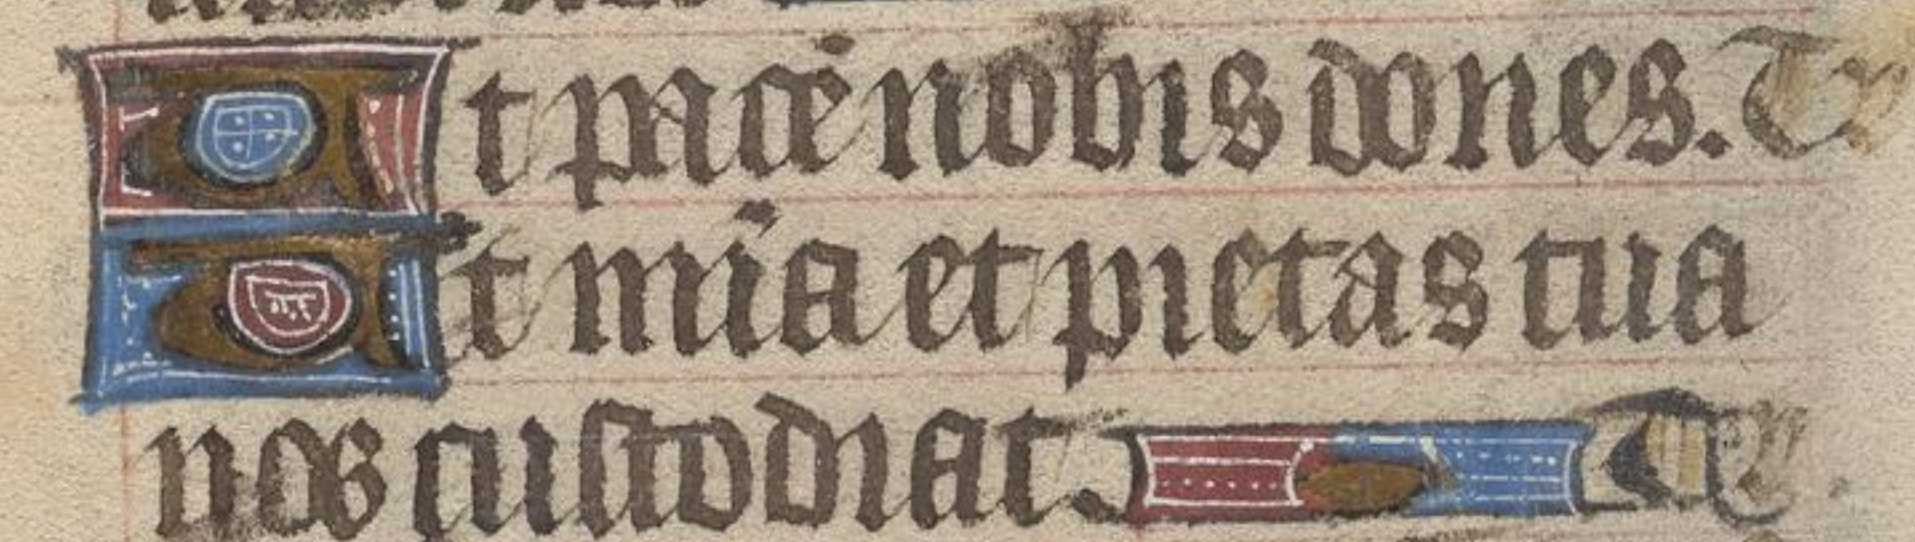 Ut pacē nobis dones. Te
Ut mīa et pietas tua
nos custodiat.